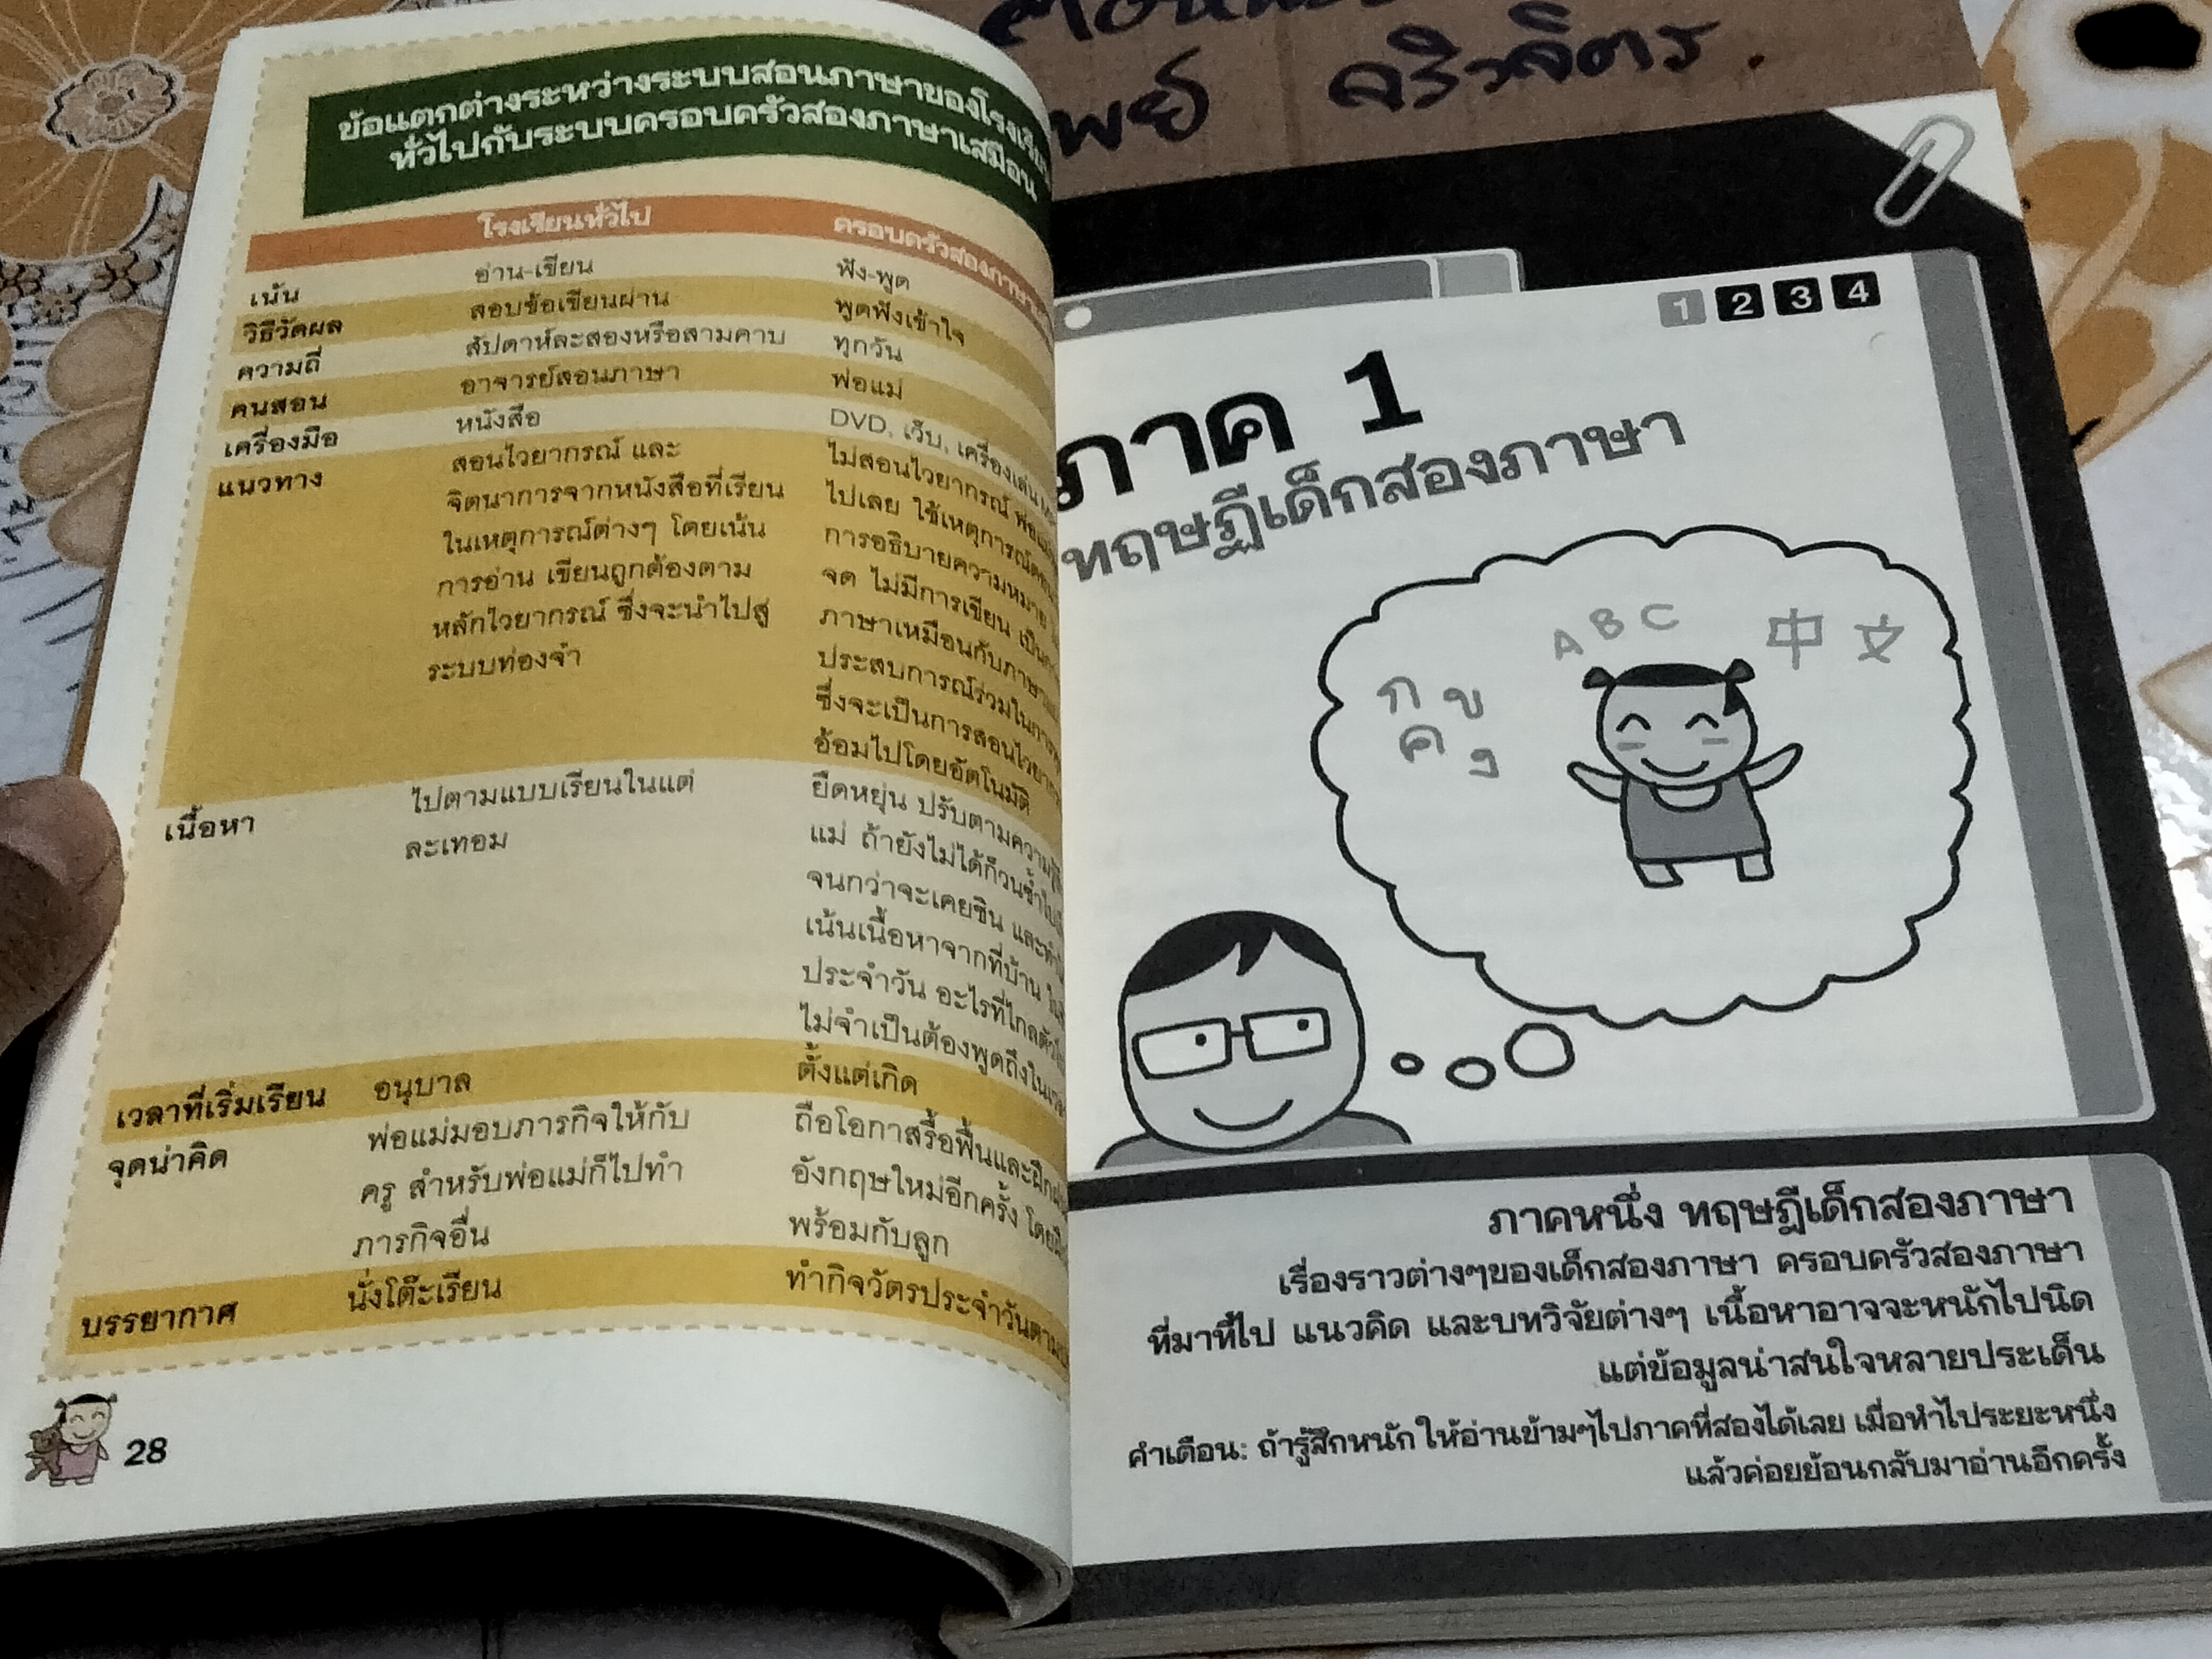 พย์ จริวจิตร.
ข้อแตกต่างระหว่างระบบสอนภาษาของโรงเรียน
ทั่วไปกับระบบครอบครัวสองภาษาเสมือน
โรงเรียนทั่วไป ครอบครัวสองภาษา
เน้น อ่าน-เขียน ฟัง-พูด
วิธีวัดผล สอบข้อเขียนผ่าน พูดฟังเข้าใจ
ความถี่ สัปดาห์ละสองหรือสามคาบ ทุกวัน
คนสอน อาจารย์สอนภาษา พ่อแม่
เครื่องมือ หนังสือ DVD, เว็บ, เครื่องเล่น
แนวทาง สอนไวยากรณ์ และ ไม่สอนไวยากรณ์
จิตนาการจากหนังสือที่เรียน ไปเลย ใช้เหตุการณ์
ในเหตุการณ์ต่างๆ โดยเน้น การอธิบายความหมาย
การอ่าน เขียนถูกต้องตาม จด ไม่มีการเขียน
หลักไวยากรณ์ ซึ่งจะนำไปสู่ ภาษาเหมือนกับภาษา
ระบบท่องจำ ประสบการณ์ร่วมในการ
ซึ่งจะเป็นการสอนไวยากรณ์
อ้อมไปโดยอัตโนมัติ
เนื้อหา ไปตามแบบเรียนในแต่ ยืดหยุ่น ปรับตามความ
ละเทอม แม่ ถ้ายังไม่ได้ก็วนซ้ำ
จนกว่าจะเคยชิน
เน้นเนื้อหาจากที่บ้าน
ประจำวัน อะไรที่ไกลตัว
ไม่จำเป็นต้องพูดถึงใน
เวลาที่เริ่มเรียน อนุบาล ตั้งแต่เกิด
จุดน่าคิด พ่อแม่มอบภารกิจให้กับ ถือโอกาสรื้อฟื้นและฝึก
ครู สำหรับพ่อแม่ก็ไปทำ อังกฤษใหม่อีกครั้ง
ภารกิจอื่น พร้อมกับลูก
บรรยากาศ นั่งโต๊ะเรียน ทำกิจวัตรประจำวันตาม
28
1 2 3 4
ภาค 1
ทฤษฎีเด็กสองภาษา
A B C
中 文
ก ข
ค ง
ภาคหนึ่ง ทฤษฎีเด็กสองภาษา
เรื่องราวต่างๆของเด็กสองภาษา ครอบครัวสองภาษา
ที่มาที่ไป แนวคิด และบทวิจัยต่างๆ เนื้อหาอาจจะหนักไปนิด
แต่ข้อมูลน่าสนใจหลายประเด็น
คำเตือน: ถ้ารู้สึกหนัก ให้อ่านข้ามๆไปภาคที่สองได้เลย เมื่อทำไประยะหนึ่ง
แล้วค่อยย้อนกลับมาอ่านอีกครั้ง